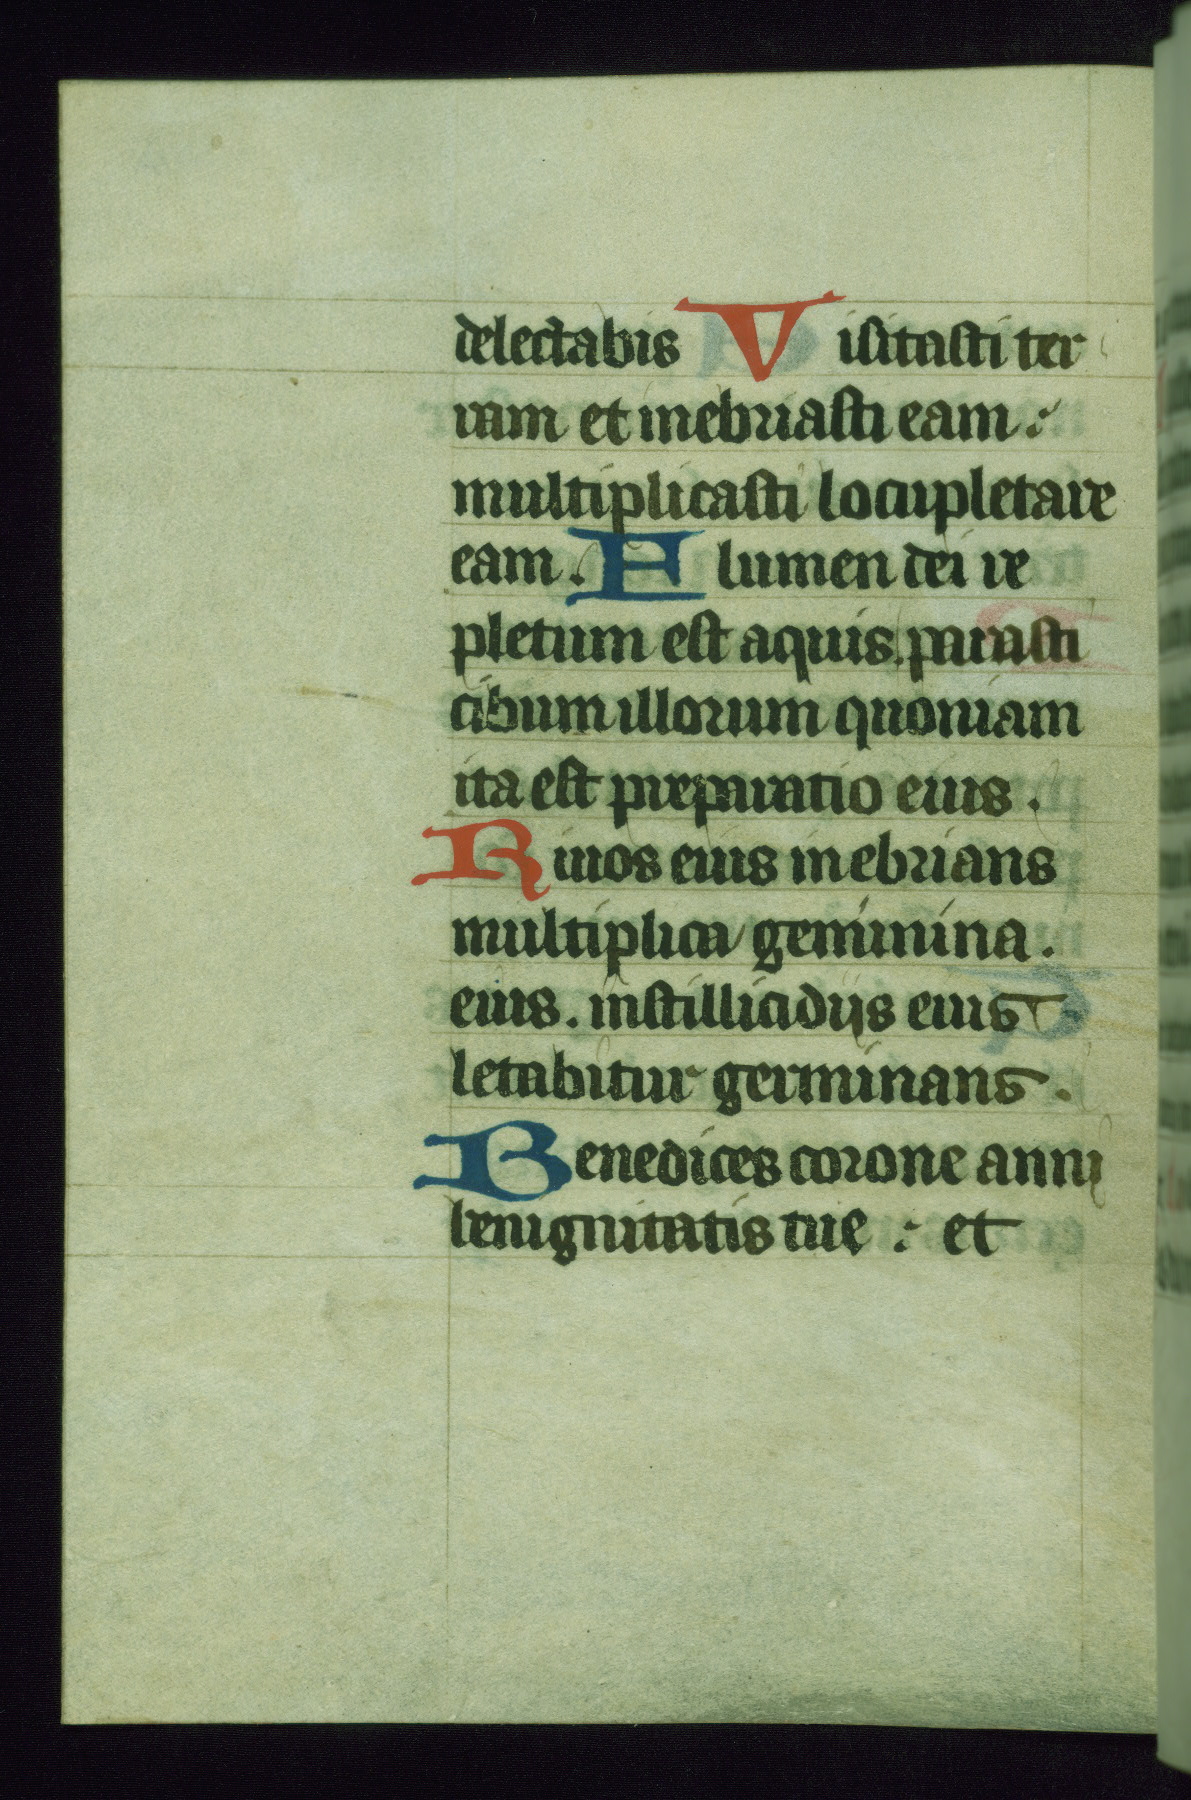 delectabis Visitasti ter
ram et inebriasti eam :
multiplicasti locupletare
eam. Flumen dei re
pletum est aquis. parasti
cibum illorum quoniam
ita est preparatio eius.
Riuos eius inebrians
multiplica geminina.
eius. instillicidijs eius
letabitur germinans.
Benedices corone anni
benignitatis tue : et